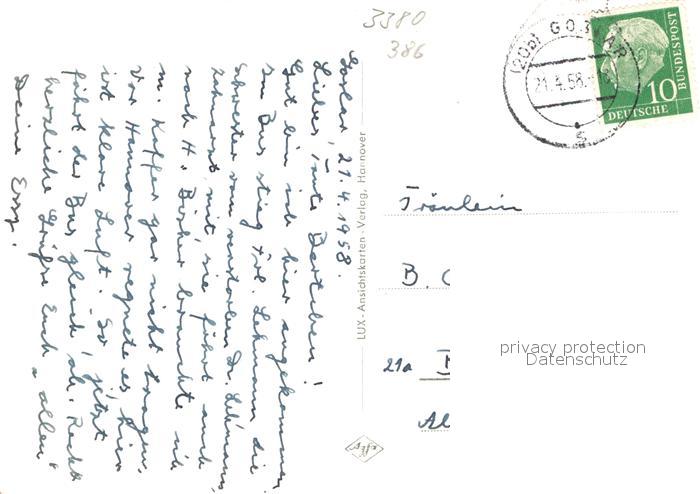 3380
386
(20b) GOSLAR
21.4.58.
s
10
DEUTSCHE
BUNDESPOST
Goslar 21.4.1958.
Liebes Tante
Gut bin ich hier angekommen
Im Bus stieg Frl. Lehmann die
Schwester vom verstorbn Dr. Lehmann
Zahnarzt mit, sie fährt auch
nach H. Bisher brauchte ich
m. Koffer gar nicht tragen.
Vor Hannover regnete es, hier
ist klare Luft. So, jetzt
fährt der Bus gleich ab. Recht
herzliche Grüße Euch allen
Deine
LUX-Ansichtskarten-Verlag, Hannover
Fräulein
B. C
21a
Al
privacy protection
Datenschutz